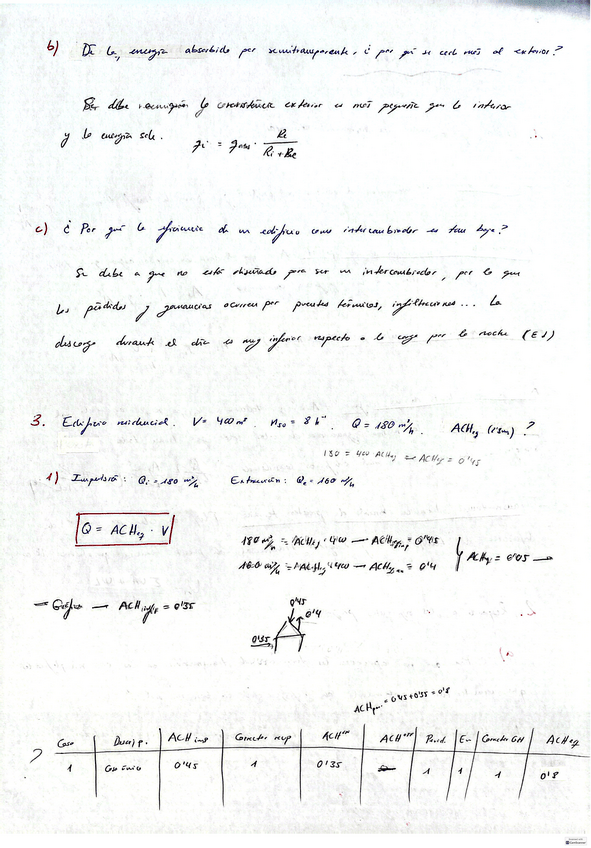 b) De la energía absorbida por semitransparente, ¿por qué se cede más al exterior?
Se debe la resistencia exterior es más pequeña que la interior
y la energía sale. qi = qabs · Re / Ri + Re
c) ¿Por qué la eficiencia de un edificio como intercambiador es tan baja?
Se debe a que no está diseñado para ser un intercambiador, por lo que
las pérdidas y ganancias ocurren por puentes térmicos, infiltraciones... La
descarga durante el día es muy inferior respecto a la carga por la noche (EJ)
3. Edificio residencial. V = 400 m³ n50 = 8 h⁻¹ Q = 180 m³/h. ACHeq ?
180 = 400 ACHeq → ACHeq = 0'45
1) Impulsión: Qi = 180 m³/h Extracción: Qe = 160 m³/h
Q = ACHeq · V
180 m³/h = ACHeq · 400 → ACH = 0'45
160 m³/h = ACHeq · 400 → ACH = 0'4
ACHeq = 0'05 →
→ Gráfica → ACHinf = 0'35
0'45
0'4
0'35
ACH = 0'45 + 0'35 = 0'8
Caso Descrip. ACHimp Corrector recup ACHinf ACH Period. En Corrector GH ACHeq
1 Caso único 0'45 1 0'35 1 1 1 0'8